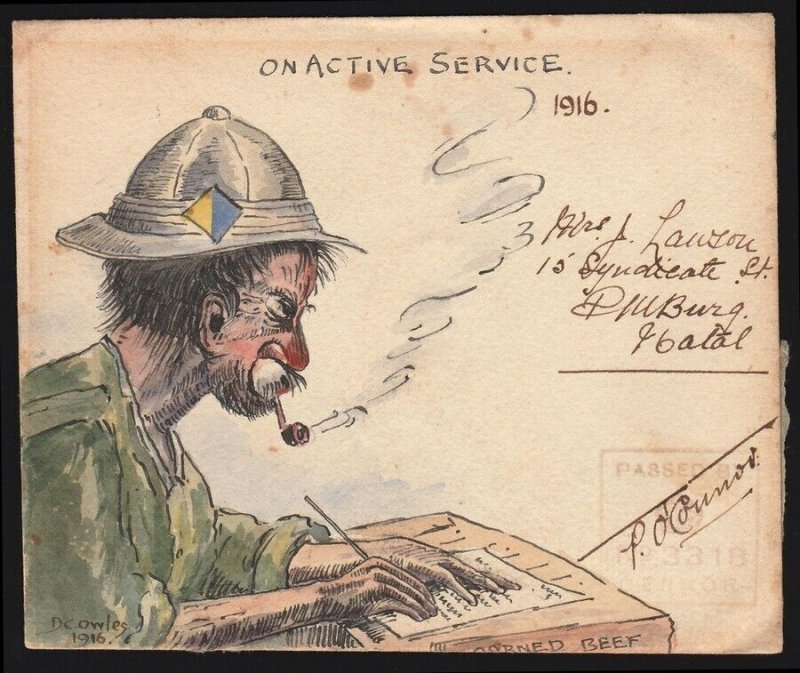 ON ACTIVE SERVICE.
1916.
Mrs. J. Lawson
15 Syndicate St.
PMBurg.
Natal
PASSED BY
P. O'Connor
D.C. Owles
1916.
CORNED BEEF